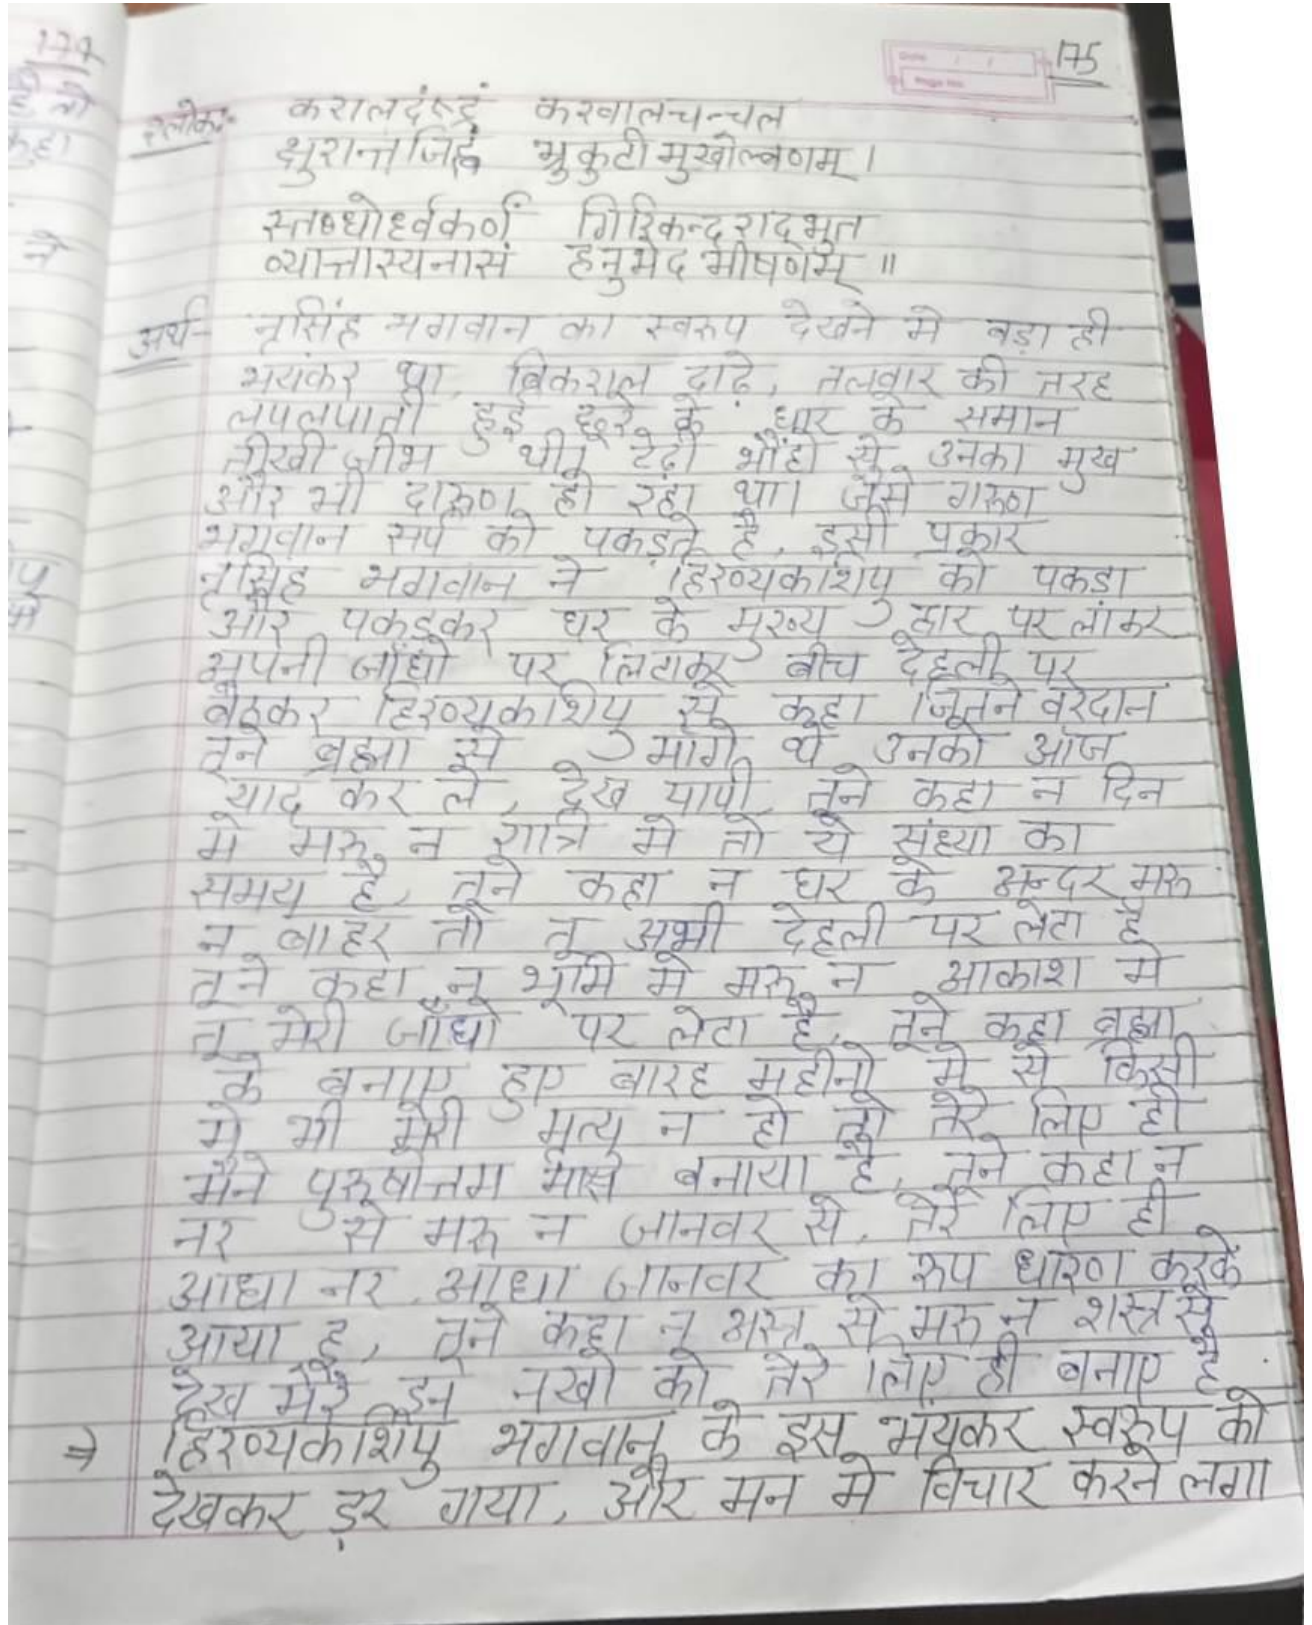 175
श्लोकः- करालदंष्ट्रं करवालचन्चल
क्षुरान्तजिह्वं भ्रुकुटी मुखोल्वणम् ।
स्तब्धोर्ध्वकर्णं गिरिकन्दरादभुत
व्यात्तास्यनासं हनुभेद भीषणम् ॥
अर्थ- नृसिंह भगवान का स्वरुप देखने मे बड़ा ही
भयंकर था, विकराल दाढ़े, तलवार की तरह
लपलपाती हुई छूरे के धार के समान
तीखी जीभ थी, टेढी भौंहो से उनका मुख
और भी दारूण हो रहा था। जैसे गरूण
भगवान सर्प को पकड़ते है, इसी प्रकार
नृसिंह भगवान ने हिरण्यकशिपु को पकडा
और पकड़कर घर के मुख्य द्वार पर लाकर
अपनी जाँघो पर लिटाकर बीच देहली पर
बैठकर हिरण्यकशिपु से कहा जितने वरदान
तूने ब्रह्मा से मांगे थे उनको आज
याद कर ले, देख पापी, तूने कहा न दिन
मे मरू न रात्रि मे तो ये संध्या का
समय है, तूने कहा न घर के अन्दर मरू
न बाहर तो तू अभी देहली पर लेटा है
तूने कहा न भूमि मे मरू न आकाश मे
तू मेरी जाँघो पर लेटा है, तूने कहा ब्रह्मा
के बनाए हुए बारह महीनो मे से किसी
मे भी मेरी मृत्यु न हो तो तेरे लिए ही
मैने पुरूषोत्तम मास बनाया है, तूने कहा न
नर से मरू न जानवर से, तेरे लिए ही
आधा नर आधा जानवर का रूप धारण करके
आया हू, तूने कहा न अस्त्र से मरू न शस्त्र से
देख मेरे इन नखो को तेरे लिए ही बनाए है
⇒ हिरण्यकशिपु भगवान के इस भंयकर स्वरूप को
देखकर ड़र गया, और मन मे विचार करने लगा